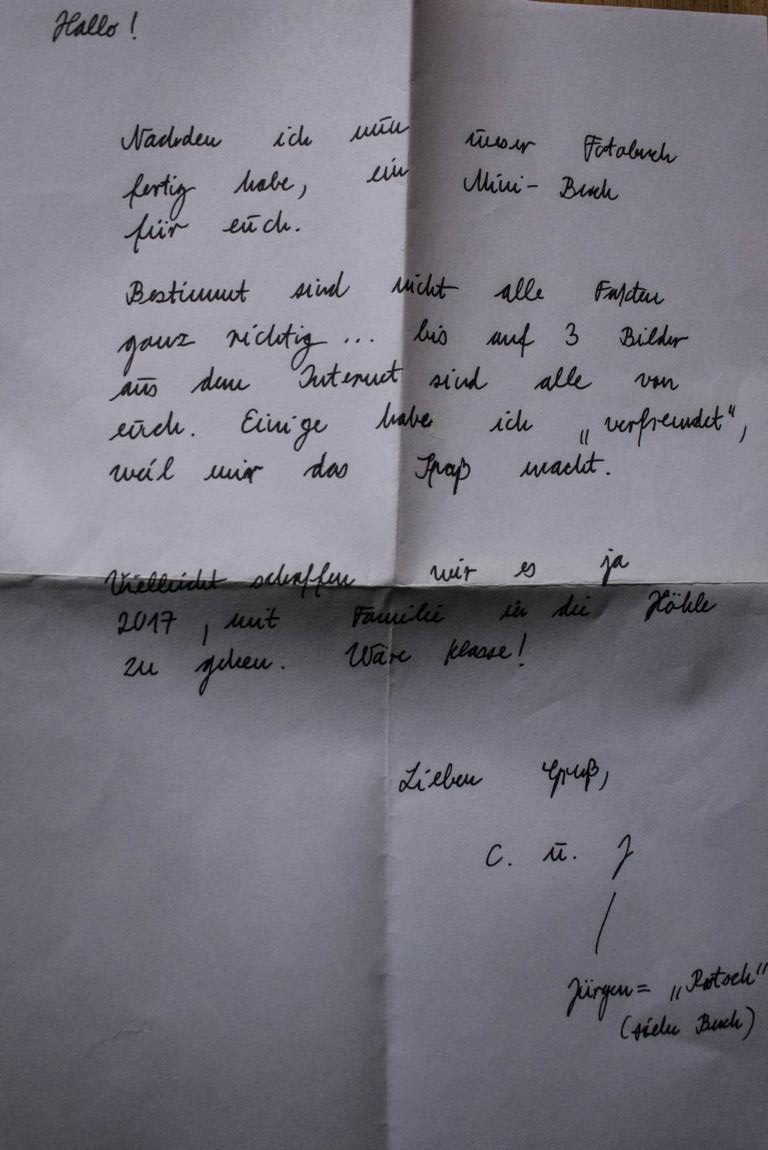 Hallo!
Nachdem ich nun unser Fotobuch
fertig habe, ein Mini-Buch
für euch.
Bestimmt sind nicht alle Fakten
ganz richtig... bis auf 3 Bilder
aus dem Internet sind alle von
euch. Einige habe ich „verfremdet“,
weil mir das Spaß macht.
Vielleicht schaffen wir es ja
2017, mit Familie in die Höhle
zu gehen. Wäre klasse!
Lieben Gruß,
C. u. J
Jürgen = „Rotsch“
(siehe Buch)